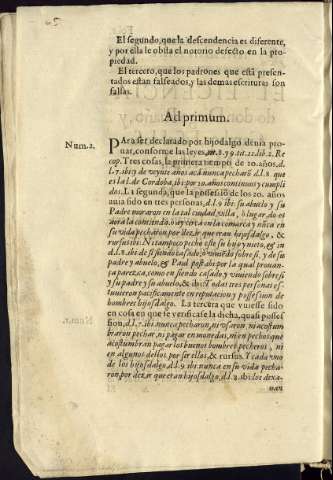 El segundo, que la descendencia es diferente,
y por ella le obsta el notorio defecto en la pro-
piedad.
El tercero, que los padrones que està presen-
tados estan falseados, y las demas escrituras son
falsas.
Ad primum.
Num. 2.
PAra ser declarado por hijodalgo deuia pro-
uar, conforme las leyes, in. 8. 7 9. tit. 11. lib. 2. Re
cop. Tres cosas, la primera tiempo de 20. años, d.
l. 7. ibi y de veinte años acà nunca pecharõ d. l. 8 que
es la l. de Cordoba, ibi por 20. años continuos y cumpli
dos. L. segunda, que la possessiõ de los 20. años
auia sido en tres personas, d. l. 9 ibi su abuelo y su
Padre moraron en la tal ciudad, villa, ò lugar do es
mora la contienda, ò ay cerca en la comarca y nūca en
su vida pecharon por dezir que eran hijosdalgo, &
rursus ibi. Ni tampoco pecho este su hijo y nieto, & in
d. l. 8. ibi de si siendo casado, ò viuiendo sobre si, y de su
padre y abuelo, & Paul post ibi por la qual prouan-
ça parezca, como en siendo casado y viuiendo sobre si
y su padre y su abuelo, & ibi: Todas tres personas es-
tuuieron pacificamente en reputacion y possession de
hombres hijosdalgo. La tercera que vuiesse sido
en cosa en que se verificasse la dicha, quasi posses-
sion, d. l. 7. ibi nunca pecharon, ni vsaron, ni acostum
braron pechar, ni pagar en monedas, ni en pechos que
acostumbran pagar los buenos hombres pecheros, ni
en algunos dellos por ser ellos, & rursus. Y cada vno
de los hijosdalgo, d. l. 9. ibi. nunca en su vida pecha-
ron, por dezir que eran hijosdalgo, d. l. 8. ibi los dexa-
uan